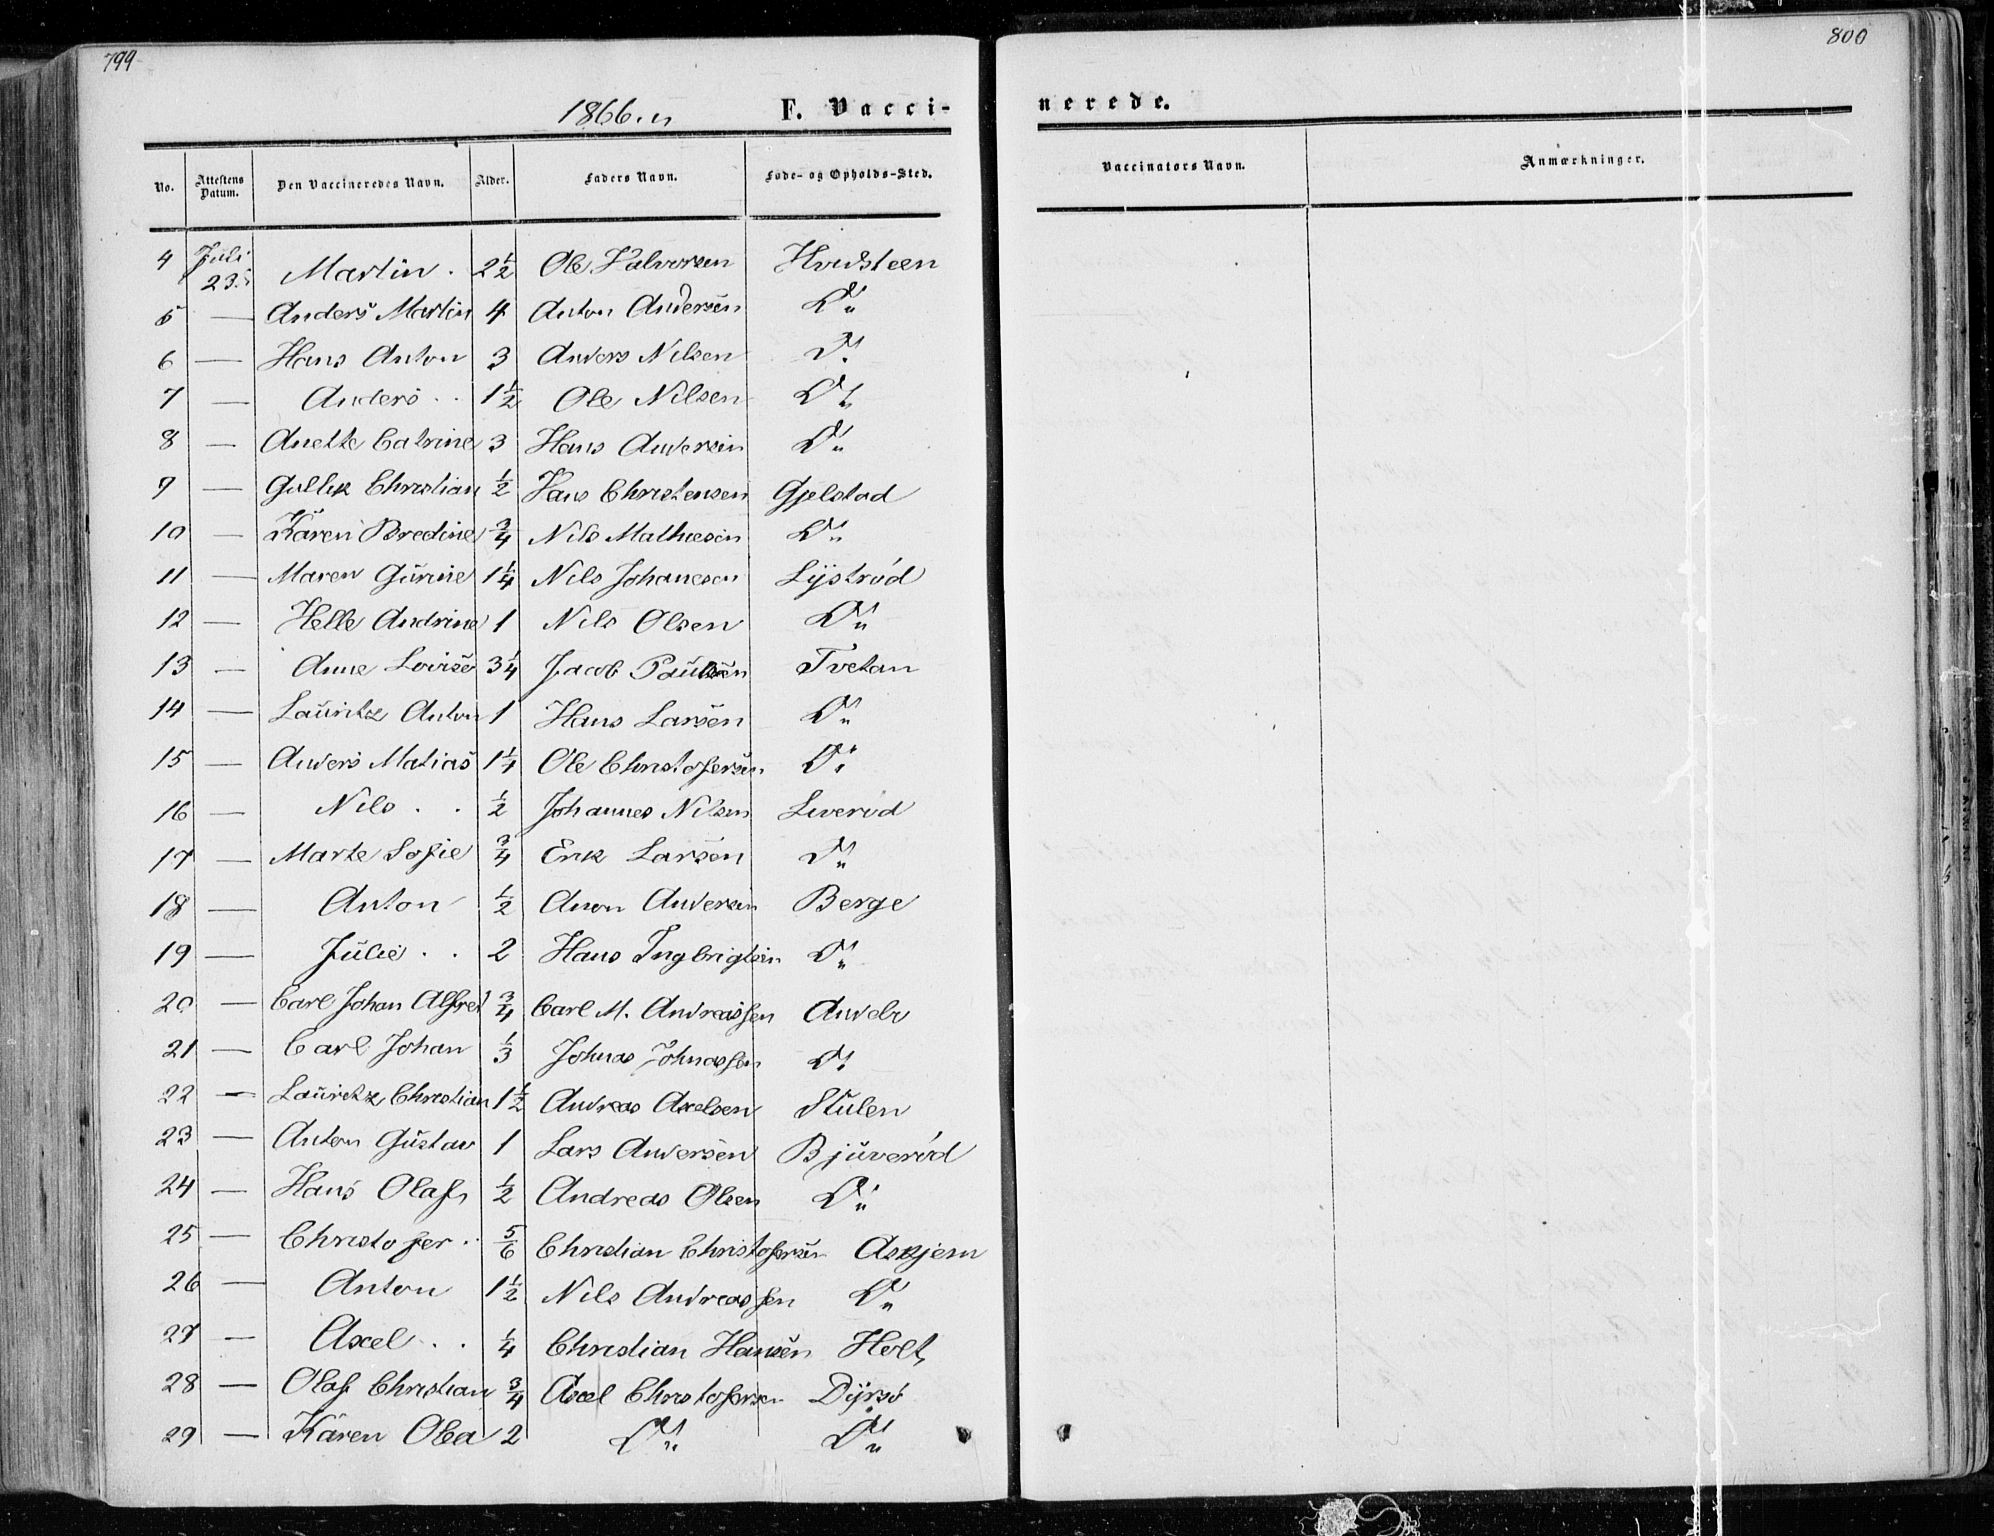 799
800
1866.
F. Vacci-
nerede.
No. Attestens Datum. Den Vaccineredes Navn. Alder. Faders Navn. Føde- og Opholds-Sted. Vaccinators Navn. Anmærkninger.
4 Juli 23 Martin. 2½ Ole Halvorsen Hvidsteen
5 — Anders Martin 4 Anton Andersen Do
6 — Hans Anton 3 Anders Nilsen Do
7 — Anders 1½ Ole Nilsen Do
8 — Anette Catrine 3 Hans Andersen Do
9 — Gullik Christian ½ Hans Christensen Gjelstad
10 — Karen Bredine ¾ Nils Mathiesen Do
11 — Maren Gurine 1¼ Nils Johanesen Lystrød
12 — Helle Andrine 1 Nils Olsen Do
13 — Anne Lovise 3¼ Jacob Paulsen Tvetan
14 — Lauritz Anton 1 Hans Larsen Do
15 — Anders Matias 1¼ Ole Christofersen Do
16 — Nils ½ Johannes Nilsen Liverød
17 — Marte Sofie ¾ Erik Larsen Do
18 — Anton ½ Andersen Berge
19 — Julie 2 Hans Ingbrigtsen Do
20 — Carl Johan Alfred ¾ Carl M. Andreassen
21 — Carl Johan ⅓ Johnas Johnassen Do
22 — Lauritz Christian 1½ Andreas Axelsen Stulen
23 — Anton Gustav 1 Lars Andersen Bjuverød
24 — Hans Olaf ½ Andreas Olsen Do
25 — Christofer ⅚ Christian Christofersen Askjem
26 — Anton 1½ Nils Andreassen Do
27 — Axel ¼ Christian Hansen Holt
28 — Olaf Christian ¾ Axel Christofersen Dyrsø
29 — Karen Olea 2 Do Do